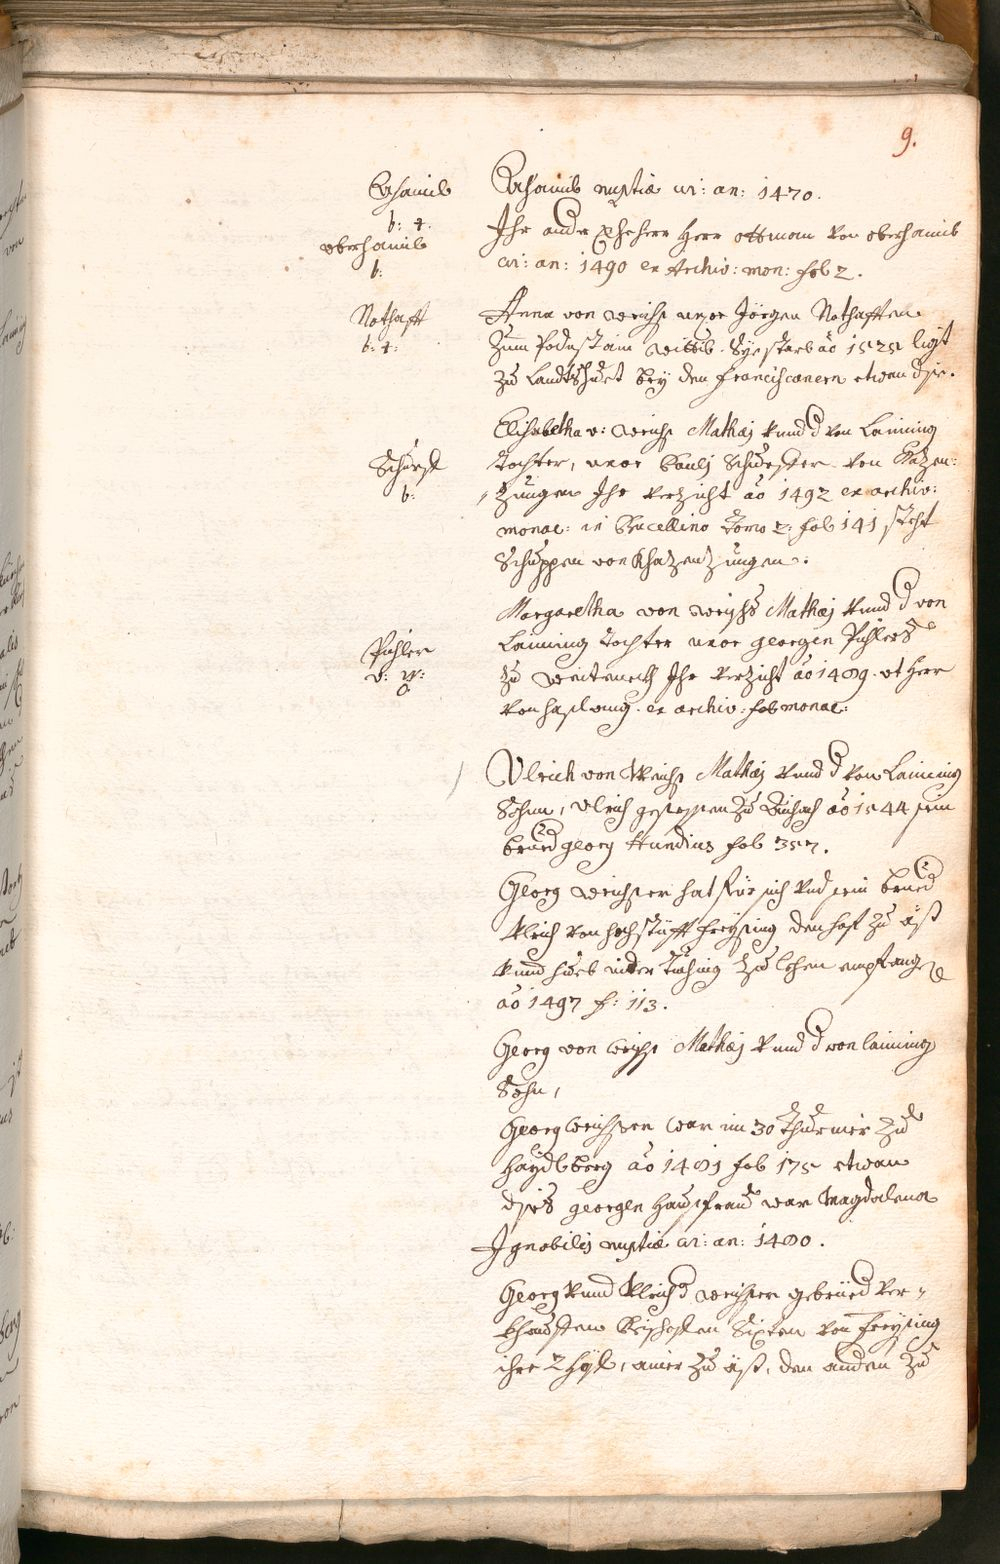 9.
Chamb
b: 4.
Chamb nuptiæ ci: an: 1470.
oberhaimb
b:
Ihr ander Eheherr Herr ottman von oberhaimb
ci: an: 1490 ex Archiv: mon: fol 2.
Nothafft
b: 4:
Anna von weichs uxor Jörgen Nothafften
Zum Podenstain wittib. Sye starb ao 1525 ligt
Zu Landtshuet bey den franciscanern
Elisabetha v: weichs Mathæj vnnd von Laiming
Tochter, uxor Paulj Schurffen von Katzen:
b:
Zungen Ihr verzicht ao 1492 ex archiv:
monac: in Bucellino tomo 2: fol 141 steht
Schuppen von Khazenzungen.
Margaretha von weichs Mathæj vnnd von
Laiming Tochter uxor georgen Pichlers
Pichler
Zu weitenech Ihr verzicht ao 1489. ut Herr
von haslang. ex archiv: monac:
Vlrich von Weichs Mathæj vnnd von Laiming
Sohn, Vlrich gesessen Zu ao 1544 sein
brued georg Hundius fol 357.
Georg weichser hat für sich vnd sein brued
Vlrich von hochstüfft freysing den hof zu äst
vnnd hueb Zu lehen empfangen
ao 1497 f: 113.
Georg von weichs Mathæj vnnd von laiming
Sohn,
Georg weichser war im 30 Thurnier Zu
Haydlberg ao 1481 fol 175 etwan
dises georgen hausfrau war Magdalena
Ignobilis nuptiæ ci: an: 1480.
Georg vnnd Vlrich weichser gebrüed ver-
khaufften Bischoffen Sixten von freysing
ihre 2 , ainer Zu äst, den andern Zu